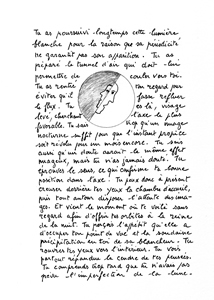 Tu as poursuivi longtemps cette lumière
blanche pour la raison que sa périodicité
ne garantit pas son apparition. Tu as
préparé le tunnel d'air qui doit lui
permettre de couler vers toi.
Tu as rentré ton regard pour
éviter qu'il fasse refluer
le flux. Tu es là, visage
levé, cherchant l'axe le plus
favorable. Tu sais qu'un nuage
nocturne suffit pour que l'instant propice
soit révolu pour un mois encore. Tu sais
aussi qu'un doute aurait le même effet
nuageux, mais tu n'as jamais douté. Tu
écarquilles le sous, ce qui confirme ta bonne
position dans l'axe. Tu peux donc à présent
creuser derrière tes yeux la chambre d'accueil,
puis tout autour disposer l'attente des ima-
ges. Et vient le moment où te voilà sans
regard afin d'offrir tes orbites à la reine
de la nuit. Tu perçois l'aspect qu'elle a
d'occuper ton point de vue et la soudaine
précipitation en toi de sa blancheur. Tu
rouvres tes yeux vers l'intérieur. Tu vois
partout répandue la cendre de tes pensées.
Tu comprends trop tard que tu n'avais pas
prévu l'imperfection de la lune.